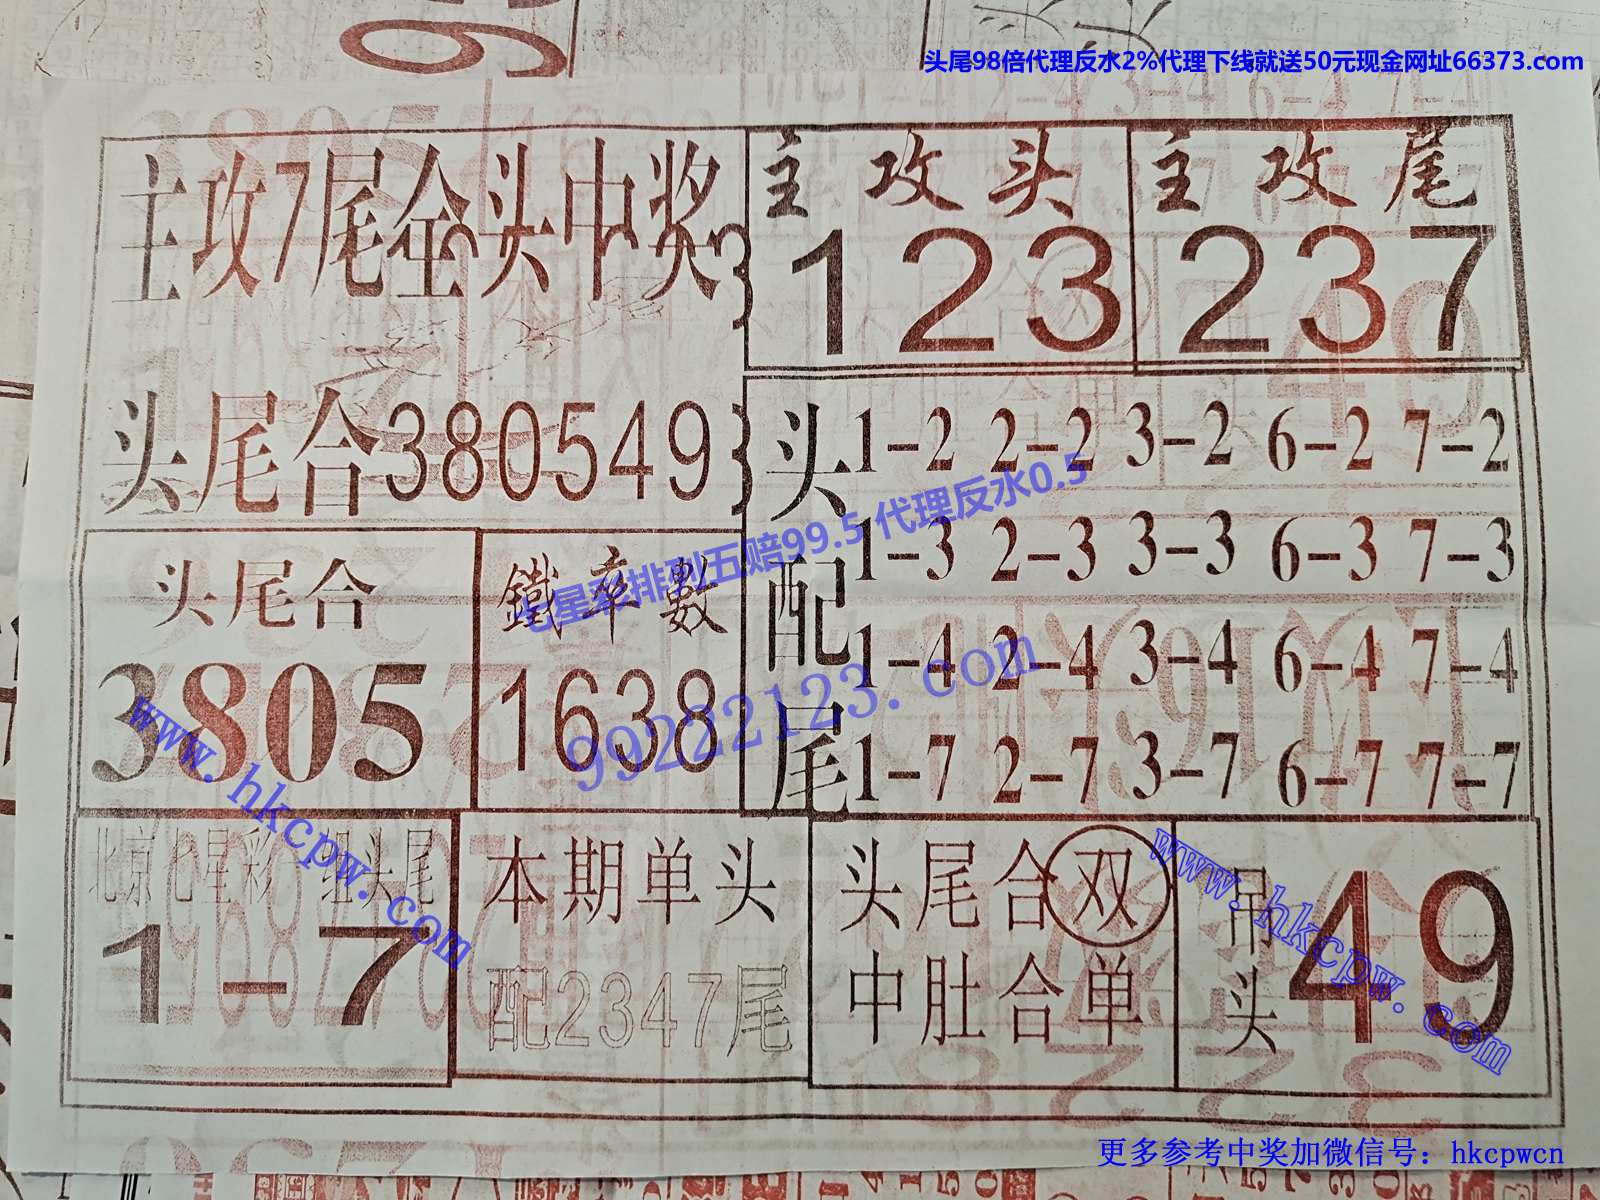 头尾98倍代理反水2%代理下线就送50元现金网址66373.com
主攻7尾全头中奖
主攻头
123
主攻尾
237
头尾合380549
头配尾
1-2 2-2 3-2 6-2 7-2
1-3 2-3 3-3 6-3 7-3
1-4 2-4 3-4 6-4 7-4
1-7 2-7 3-7 6-7 7-7
头尾合
3805
鐵率數
1638
七星彩排列五赔99.5 代理反水0.5
99222123.com
www.hkcpw.com
北京七星彩一组头尾
1-7
本期单头
配2347尾
头尾合双
中肚合单
吊头
49
www.hkcpw.com
更多参考中奖加微信号：hkcpwcn